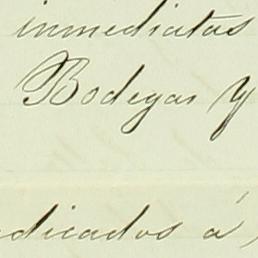 inmediatas
Bodegas y
dicados á